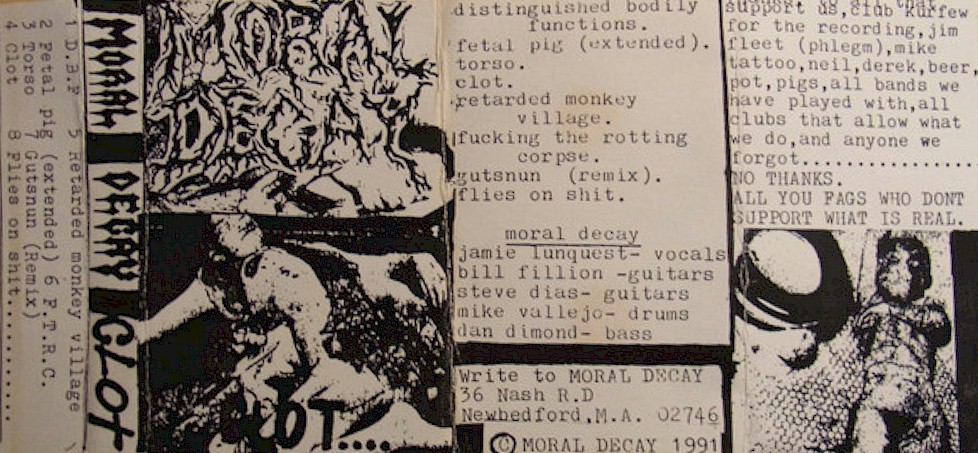 1 D.B.F 5 Retarded monkey village
2 Fetal pig (extended) 6 F.T.R.C.
3 Torso 7 Gutsnun (Remix)
4 Clot 8 Flies on shit.........
MORAL DECAY CLOT
MORAL
DECAY
CLOT....
distinguished bodily
functions.
fetal pig (extended).
torso.
clot.
retarded monkey
village.
fucking the rotting
corpse.
gutsnun (remix).
flies on shit.
moral decay
jamie lunquest- vocals
bill fillion -guitars
steve dias- guitars
mike vallejo- drums
dan dimond- bass
Write to MORAL DECAY
36 Nash R.D
Newbedford,M.A. 02746
© MORAL DECAY 1991
support us,club Kurfew
for the recording,jim
fleet (phlegm),mike
tattoo,neil,derek,beer,
pot,pigs,all bands we
have played with,all
clubs that allow what
we do,and anyone we
forgot...............
NO THANKS.
ALL YOU FAGS WHO DONT
SUPPORT WHAT IS REAL.